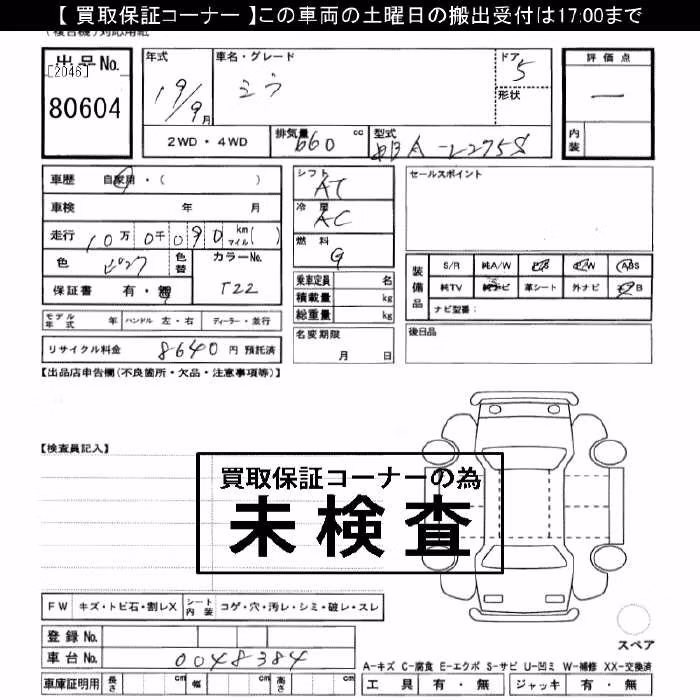 【 買取保証コーナー 】この車両の土曜日の搬出受付は17:00まで
(複合機)対応用紙
出品No.
[2046]
80604
年式
19/9月
車名・グレード
ミラ
ドア
5
形状
評価点
—
内装
2WD・4WD
排気量 660 cc
型式 DBA-L275S
車歴 自家用・( )
車検 年 月
走行 10万 0千 090 km マイル( )
色
色替
カラーNo.
T22
保証書 有・無
シフト
AT
冷房
AC
燃料
G
乗車定員 名
積載量 kg
総重量 kg
名変期限
月 日
セールスポイント
装備品
S/R 純A/W P/S P/W ABS
純TV 純ナビ 革シート 外ナビ エアB
ナビ型番:
後日品
モデル年式 年 ハンドル 左・右 ディーラー・並行
リサイクル料金 8640 円 預託済
【出品店申告欄(不良箇所・欠品・注意事項等)】
【検査員記入】
買取保証コーナーの為
未検査
FW キズ・トビ石・割レX シート内装 コゲ・穴・汚レ・シミ・破レ・スレ
登録No.
車台No. 0048384
車庫証明用 長さ cm 幅 cm 高さ cm
スペア
A-キズ C-腐食 E-エクボ S-サビ U-凹ミ W-補修 XX-交換済
工具 有・無 ジャッキ 有・無